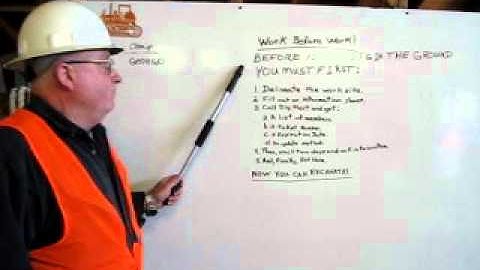 George
Work Before Work!
BEFORE IN THE GROUND
YOU MUST FIRST:
1. Delineate the work site.
2. Fill out an information sheet.
3. Call Dig Alert and get:
a. A list of members
b. A ticket number
c. Excavation Date
d. An update method
4. Then, wait two days and
5. And, Finally, Pot Hole
NOW YOU CAN EXCAVATE!